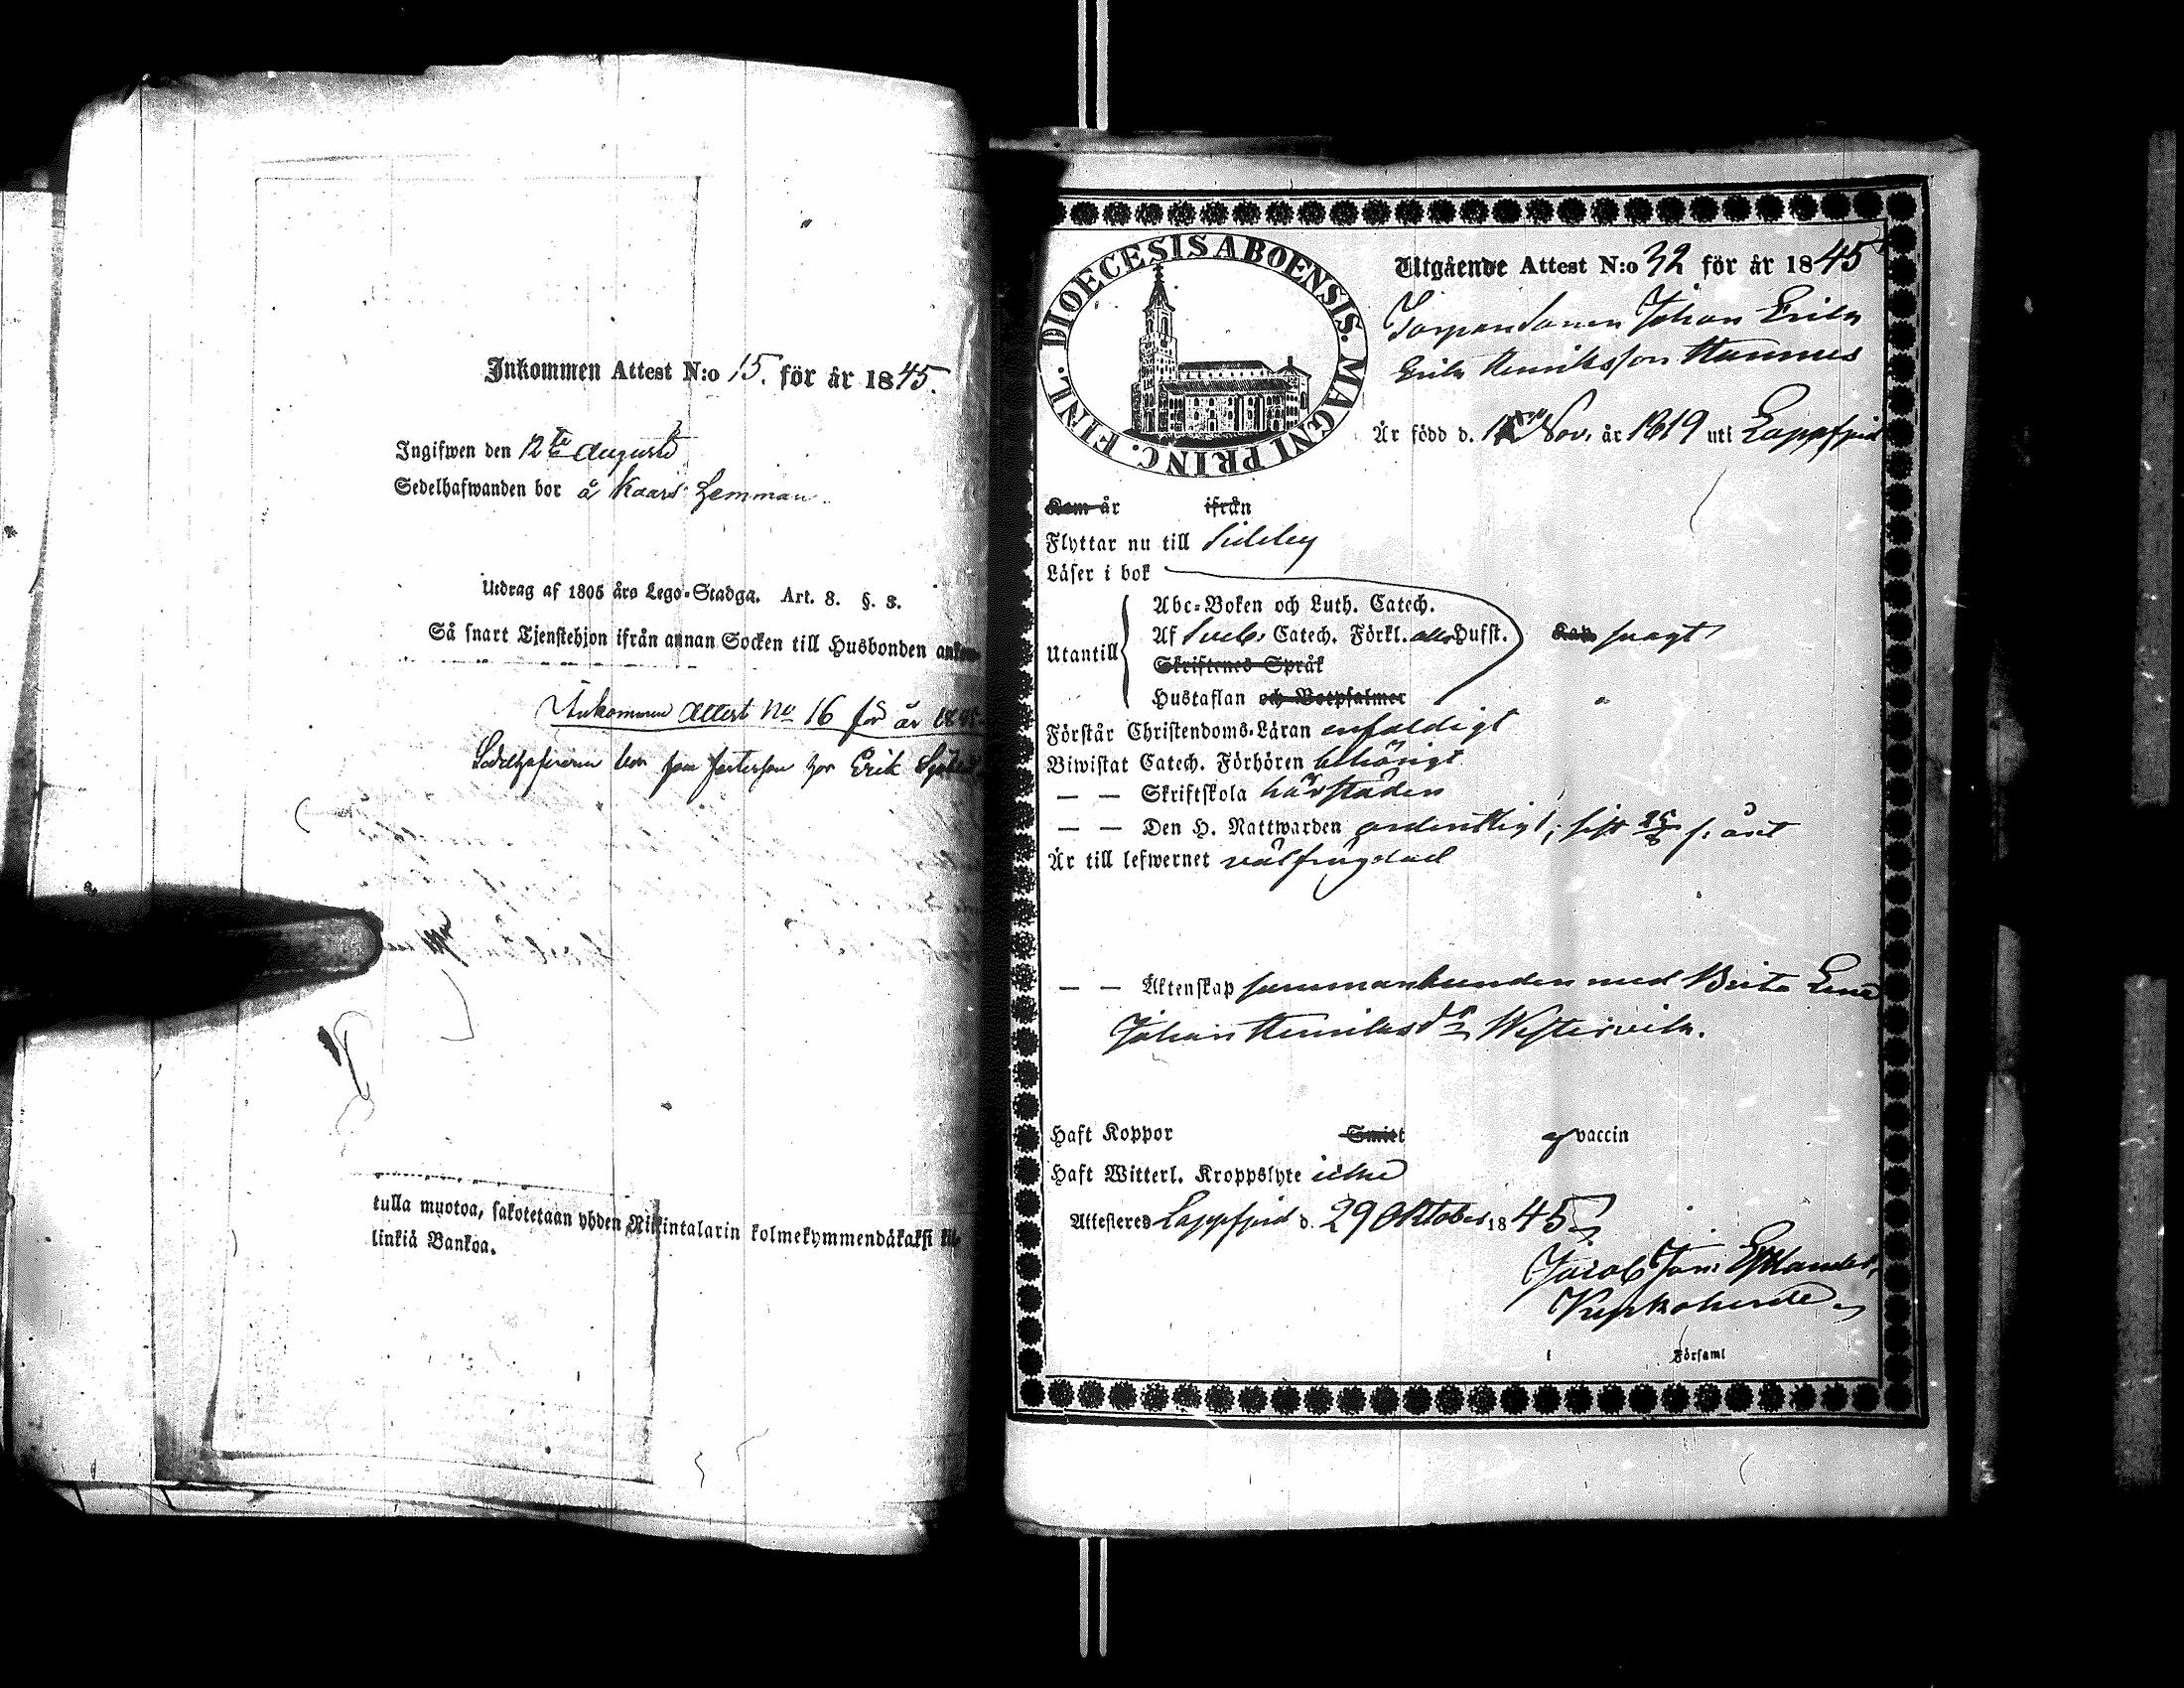 Inkommen Attest N:o 15. för år 1845.
Ingifwen den 12te Augusti
Sedelhafwanden bor å Kaars Hemman.
Utdrag af 1805 års Lego-Stadga. Art. 8. §. 3.
Så snart Tjenstehjon ifrån annan Socken till Husbonden
Inkommen Attest No 16 för år 1845
bor hos Erik
tulla muotoa, sakotetaan yhden Rikintalarin kolmekymmendäkaksi
linkiä Bankoa.
DIOECESIS ABOENSIS. MAGNI PRINC. FINL.
Utgående Attest N:o 32 för år 1845
Johan Erik
Erik Henriksson Hannus
Är född d. Nov. år 1819 uti Lappfjerd
Kom år ifrån
Flyttar nu till Sideby
Läser i bok
Utantill
Abc-Boken och Luth. Catech.
Af Sveb. Catech. Förkl. Hufst.
Skriftenes Språk
Hustaflan och Botpsalmer
Kan svagt
Förstår Christendoms-Läran enfaldigt
Biwistat Catech. Förhören behörigt
— — Skriftskola härstädes
— — Den H. Nattwarden ordentligt, sist
Är till lefwernet välfrägdad
— — Äktenskap sammanbunden med Brita Lena
Johan Henriksdr Westervik.
Haft Koppor Smitt af vaccin
Haft Witterl. Kroppslyte icke
Attesteres Lappfjerd d. 29 Oktober 1845
Jacob Joh:
Kyrkoherde
i Församl